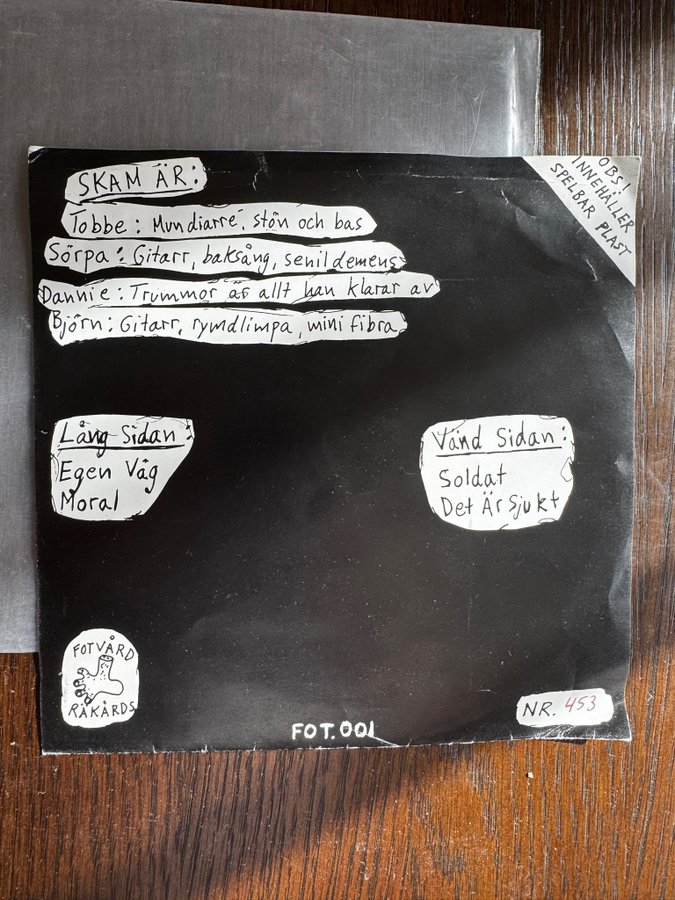 SKAM ÄR:
Tobbe: Mundiarré, stön och bas
Sörpa: Gitarr, baksång, senil demens
Dannie: Trummor är allt han klarar av
Björn: Gitarr, rymdlimpa, mini fibra
OBS!
INNEHÅLLER
SPELBAR PLAST
Lång Sidan:
Egen Väg
Moral
Vänd Sidan:
Soldat
Det Är Sjukt
FOTVÅRD
RÄKÅRDS
FOT.001
NR. 453